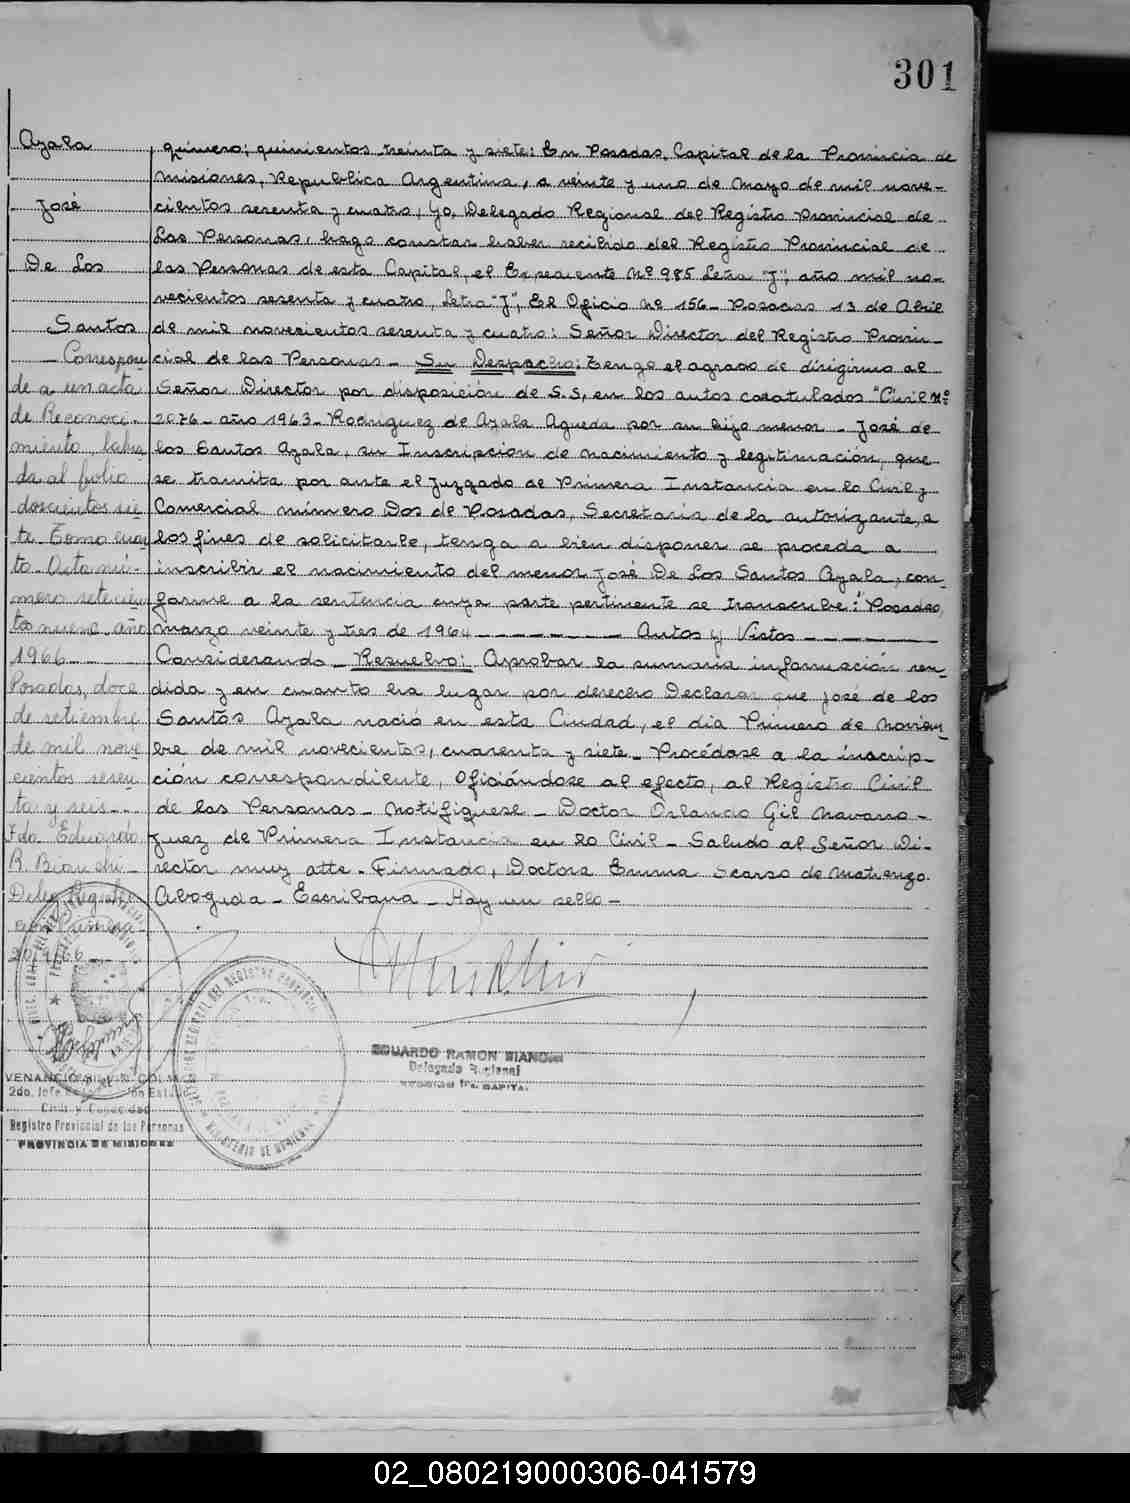 301
Ayala
José
De Los
Santos
— Correspon
de a un acta
de Reconoci-
miento, labra
da al folio
doscientos sie-
te Tomo cuar
to. Acta nú-
mero setecien
tos nueve año
1966
Posadas, doce
de setiembre
de mil nove
cientos sesen
ta y seis -
Fdo. Eduardo
R. Bianchi -
Deleg. Registro
Número; quinientos treinta y siete: En Posadas, Capital de la Provincia de
Misiones, Republica Argentina, a veinte y uno de Mayo de mil nove-
cientos sesenta y cuatro, Yo, Delegado Regional del Registro Provincial de
Las Personas, hago constar haber recibido del Registro Provincial de
las Personas de esta Capital, el Expediente Nº 985 Letra "J", año mil no-
vecientos sesenta y cuatro, Letra "J", El Oficio Nº 156 - Posadas 13 de Abril
de mil novecientos sesenta y cuatro: Señor Director del Registro Provin-
cial de las Personas - Su Despacho: Tengo el agrado de dirigirme al
Señor Director por disposición de S.S, en los autos caratulados "Civil Nº
2076 - año 1963 - Rodriguez de Ayala Agueda por su hijo menor - José de
los Santos Ayala, su Inscripción de nacimiento y legitimación, que
se tramita por ante el Juzgado de Primera Instancia en lo Civil y
Comercial número Dos de Posadas, Secretaria de la autorizante, a
los fines de solicitarle, tenga a bien disponer se proceda a
inscribir el nacimiento del menor José De Los Santos Ayala, con-
forme a la sentencia cuya parte pertinente se transcribe: "Posadas,
marzo veinte y tres de 1964 - - - - - - - Autos y Vistos - - - - - -
Considerando - Resuelvo: Aprobar la sumaria información ren-
dida y en cuanto ha lugar por derecho Declarar que José de los
Santos Ayala nació en esta Ciudad, el dia Primero de Noviem-
bre de mil novecientos, cuarenta y siete - Procédase a la inscrip-
ción correspondiente, Oficiándose al efecto, al Registro Civil
de las Personas - Notifiquese - Doctor Orlando Gil Navarro -
Juez de Primera Instancia en lo Civil - Saludo al Señor Di-
rector muy atte - Firmado, Doctora Emma Scarso de Matienzo.
Abogada - Escribana - Hay un sello -
EDUARDO RAMON BIANCHI
Delegado Regional
2do. Jefe
Civil y Capacidad
Registro Provincial de las Personas
PROVINCIA DE MISIONES
02_080219000306-041579